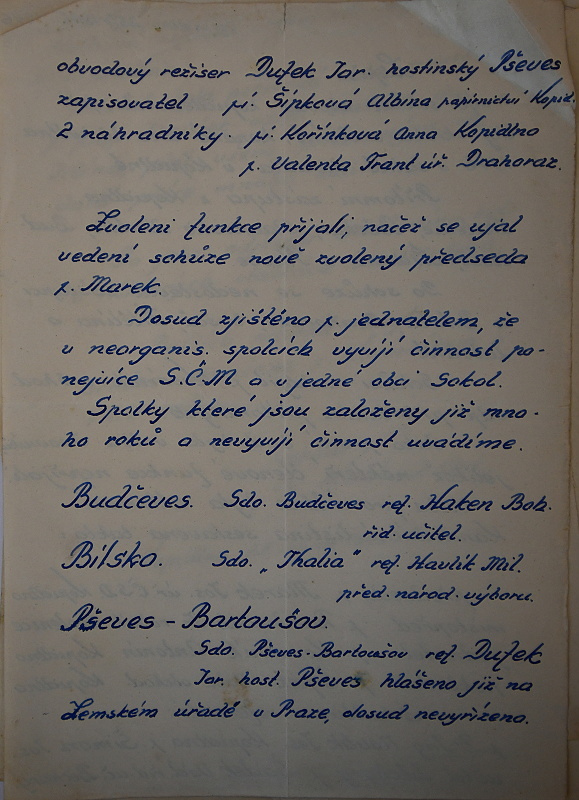 obvodový režiser Dufek Jar. hostinský Pševes
zapisovatel pí. Šípková Albína papírnictví Kopid.
2 náhradníky. pí. Kořínková Anna Kopidlno
p. Valenta Frant úř. Drahoraz.
Zvolení funkce přijali, načež se ujal
vedení schůze nově zvolený předseda
p. Marek.
Dosud zjištěno p. jednatelem, že
v neorganis. spolcích vyvíjí činnost po-
nejvíce S.Č.M a v jedné obci Sokol.
Spolky které jsou založeny již mno-
ho roků a nevyvíjí činnost uvádíme.
Budčeves. Sdo. Budčeves ref. Haken Boh.
říd. učitel.
Bílsko. Sdo. „Thalia" ref. Havlík Mil.
před. národ. výboru.
Pševes - Bartoušov.
Sdo. Pševes-Bartoušov ref. Dufek
Jar. host. Pševes hlášeno již na
Zemském úřadě v Praze, dosud nevyřízeno.